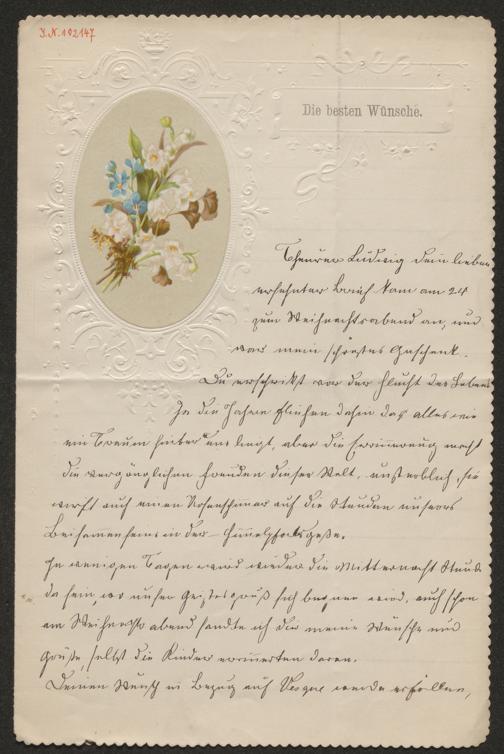 J.N. 192147
Die besten Wünsche.
Theurer Ludwig dein lieber
ersehnter Brief kam am 24
zum Weihnachtsabend an, und
war mein schönstes Geschenk.
Du erschrikst vor der Flucht des Lebens
Ja die Jahre fliehen dahin das alles wie
ein Traum hinter uns liegt, aber die Erinnerung macht
die vergänglichen Freuden dieser Welt, unsterblich, sie
wirft auch einen Rosenschimmer auf die Stunden unseres
Beisammenseins in der Himmelpfortgasse.
In wenigen Tagen wird wieder die Mitternacht Stunde
da sein, wo unser Geistesgruß sich begegnen wird, auch schon
am Weihnachtsabend sandte ich dir meine Wünsche und
Grüße, selbst die Kinder erinnerten daran.
Deinen Wunsch in Bezug auf werde erfüllen,